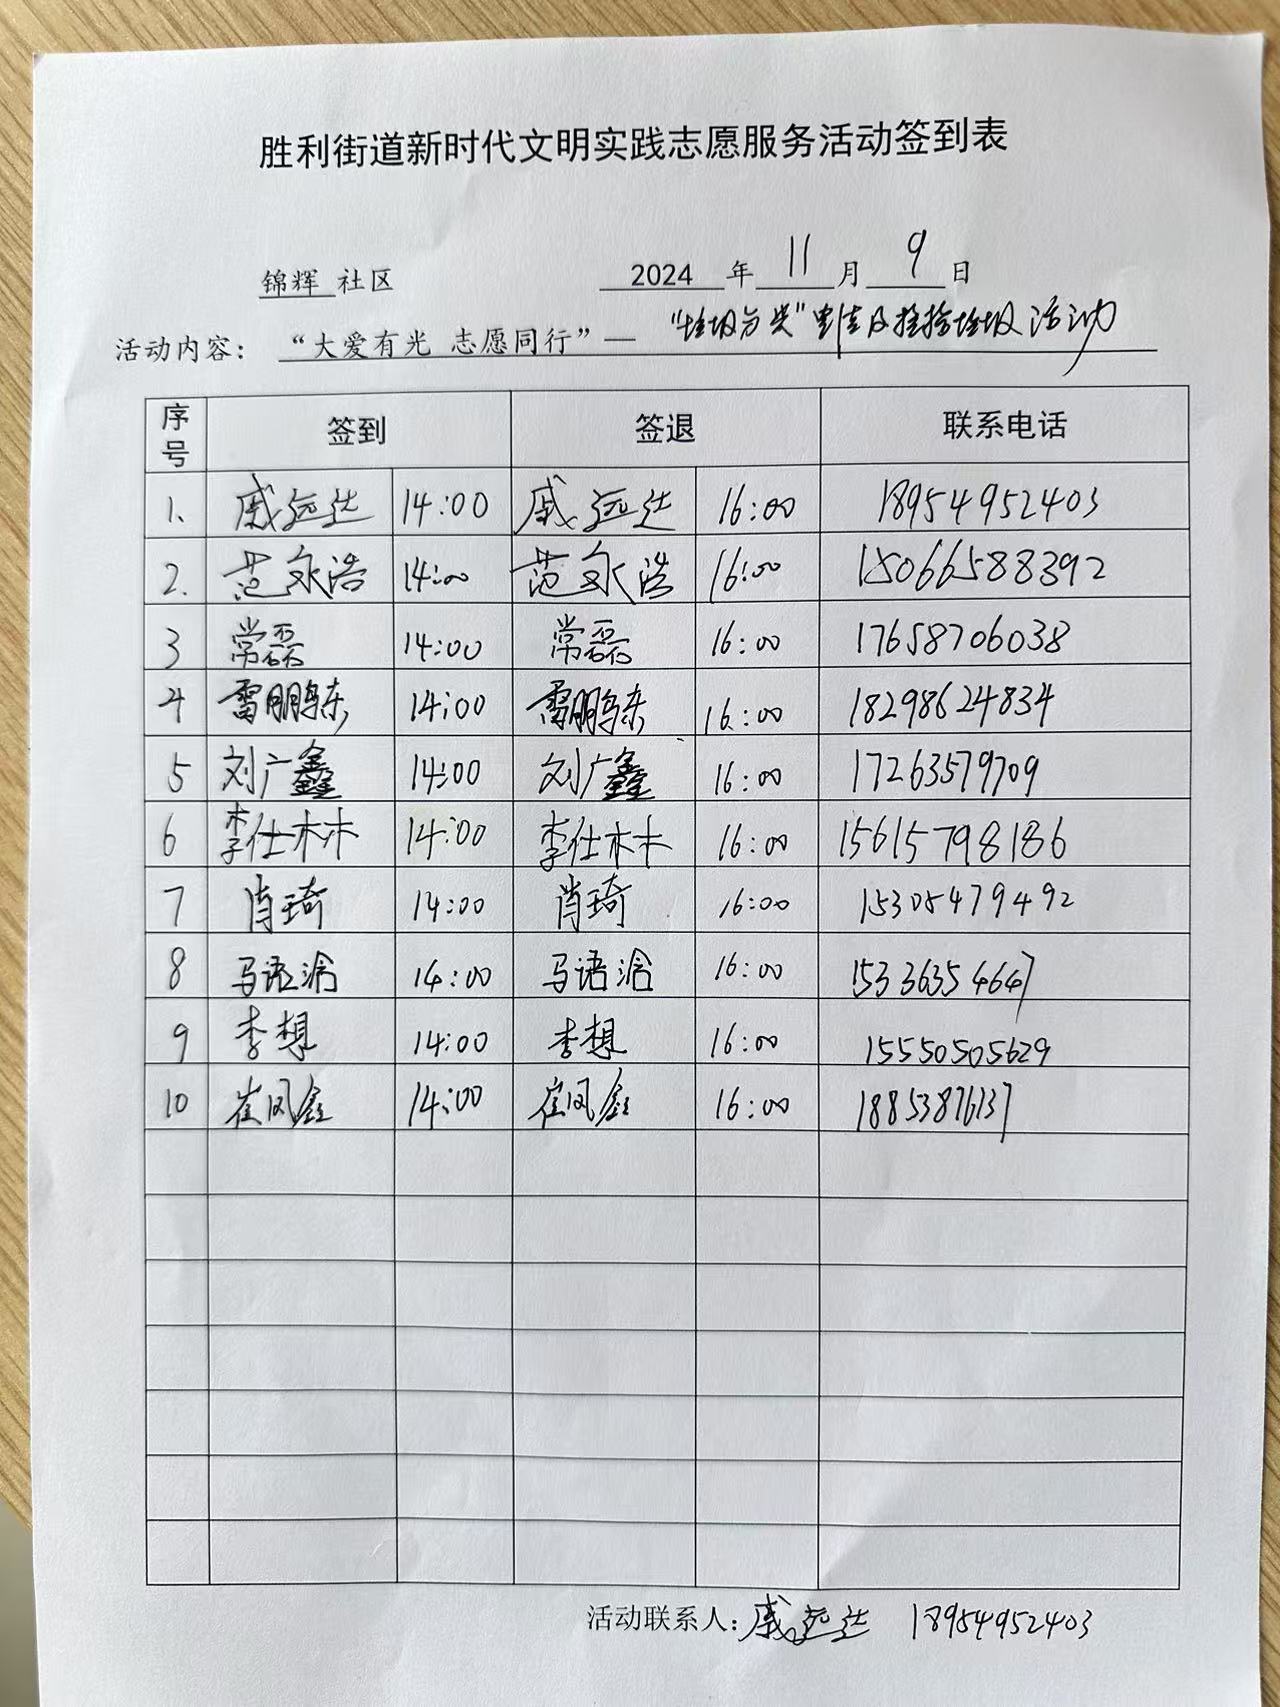 胜利街道新时代文明实践志愿服务活动签到表
锦辉 社区 2024 年 11 月 9 日
活动内容： “大爱有光 志愿同行”— “垃圾分类” 及捡拾垃圾活动
序号 签到 签退 联系电话
1、 戚远达 14:00 戚远达 16:00 18954952403
2. 范永浩 14:00 范永浩 16:00 15066588392
3 常磊 14:00 常磊 16:00 17658706038
4 雷鹏东 14:00 雷鹏东 16:00 18298624834
5 刘广鑫 14:00 刘广鑫 16:00 17263579709
6 李仕林 14:00 李仕林 16:00 15615798186
7 肖琦 14:00 肖琦 16:00 15305479492
8 马语涵 14:00 马语涵 16:00 15336354647
9 李想 14:00 李想 16:00 15550505629
10 崔凤鑫 14:00 崔凤鑫 16:00 18853876137
活动联系人：戚远达 18954952403